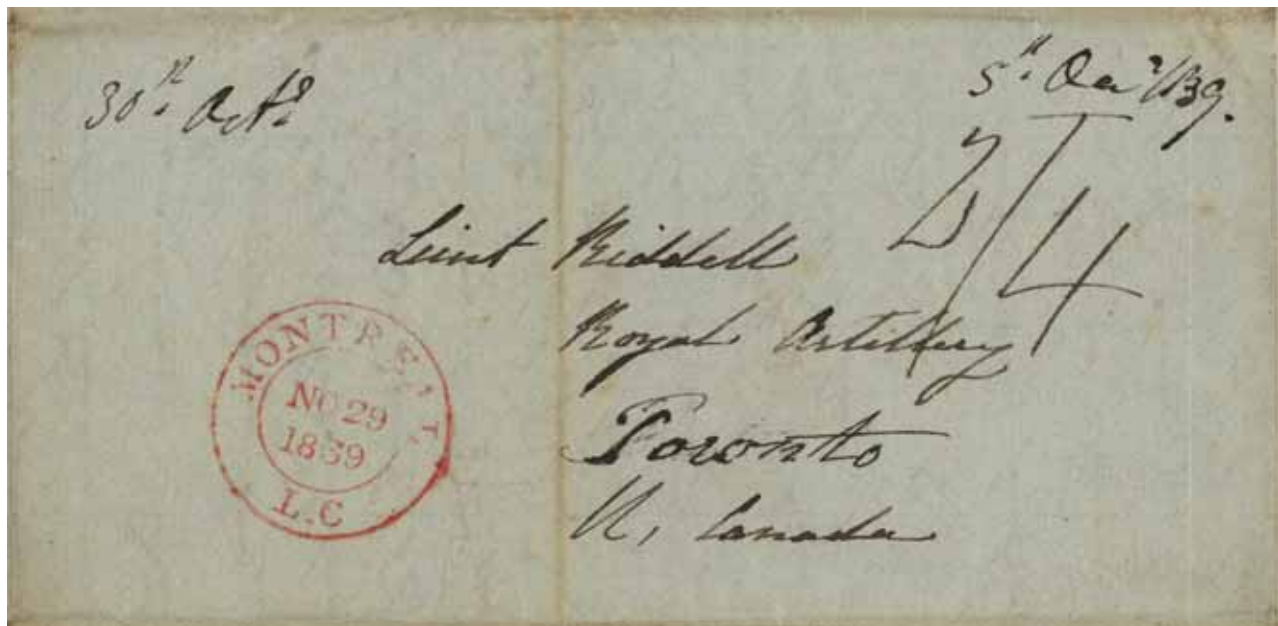 30th Octr
5th Decr /39.
2/4
Lieut Riddell
Royal Artillery
Toronto
U, Canada
MONTREAL
NO 29
1839
L.C